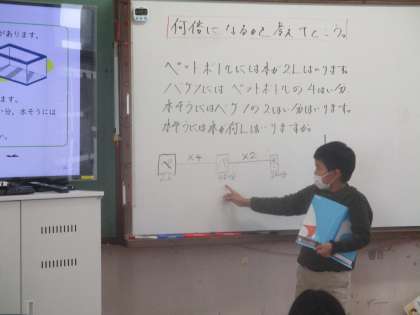 何倍になるかを考えてとこう。
ペットボトルには水が2Lはいります。
バケツにはペットボトルの4はい分、
水そうにはバケツの2はい分はいります。
水そうには水が何Lはいりますか。
があります。
ます。
い分、水そうには
×4
×2
2L